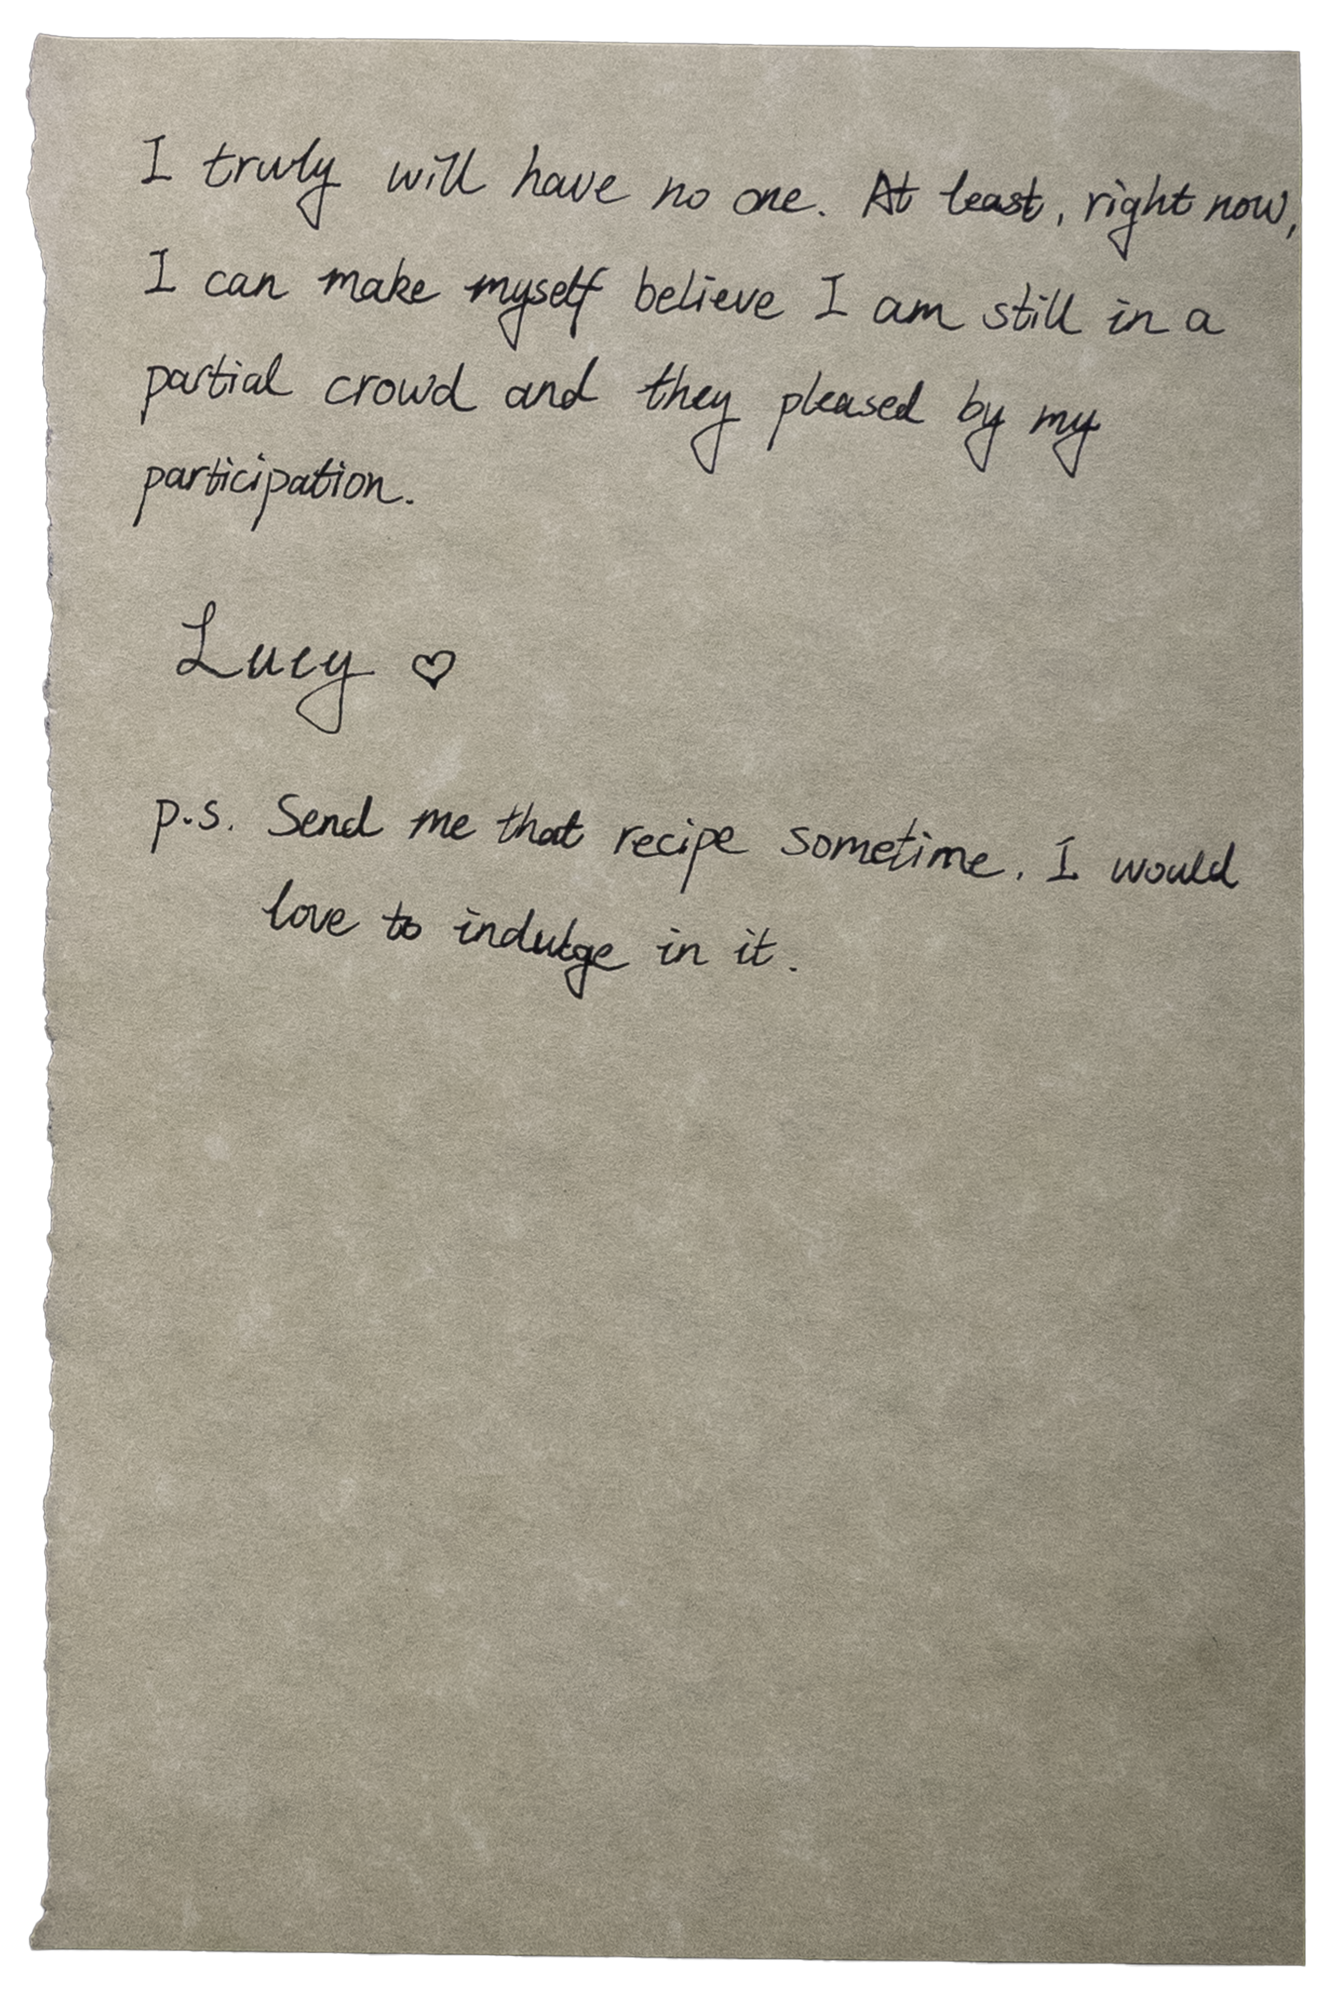 I truly will have no one. At least, right now,
I can make myself believe I am still in a
partial crowd and they pleased by my
participation.
Lucy ♡
p.s. Send me that recipe sometime. I would
love to indulge in it.